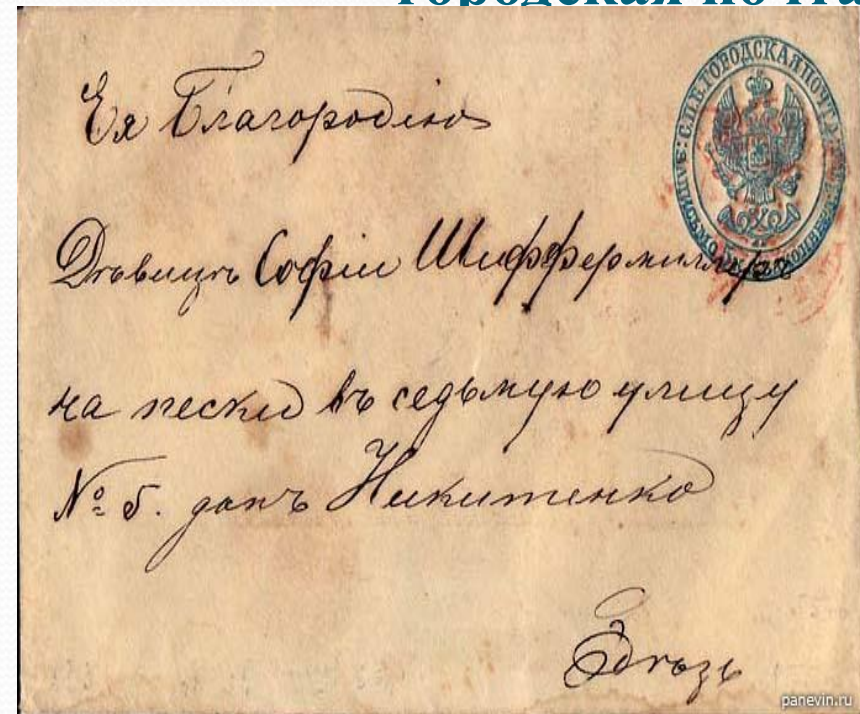 городская почта
С.П.Б. ГОРОДСКАЯ ПОЧТА
Ея Благородію
Дѣвицѣ Софіи Шиффермиллеръ
на пески въ седьмую улицу
№ 5. домъ Никитенко
Здѣсь
panevin.ru